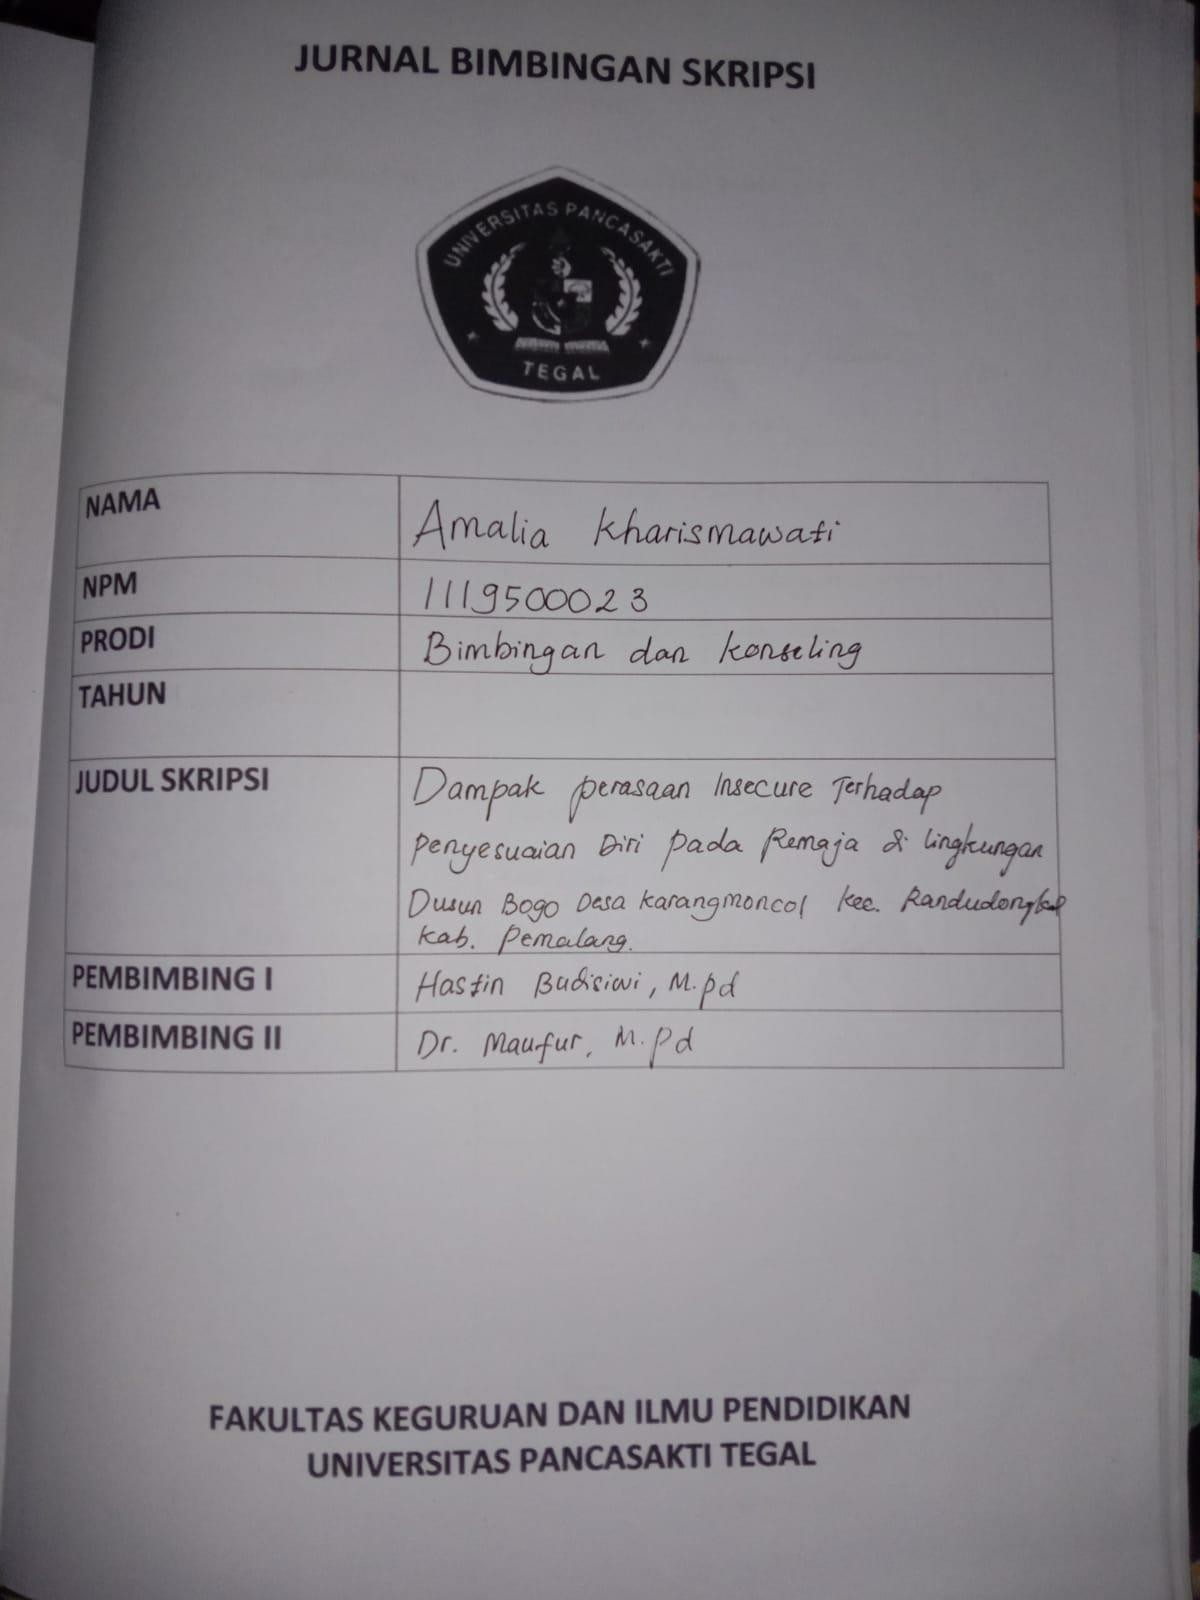 JURNAL BIMBINGAN SKRIPSI
UNIVERSITAS PANCASAKTI
TEGAL
NAMA Amalia Kharismawati
NPM 1119500023
PRODI Bimbingan dan Konseling
TAHUN
JUDUL SKRIPSI Dampak perasaan Insecure Terhadap
Penyesuaian Diri pada Remaja di lingkungan
Dusun Bogo Desa Karangmoncol Kec. Randudongkal
Kab. Pemalang.
PEMBIMBING I Hastin Budisiwi, M.pd
PEMBIMBING II Dr. Maufur, M.Pd
FAKULTAS KEGURUAN DAN ILMU PENDIDIKAN
UNIVERSITAS PANCASAKTI TEGAL